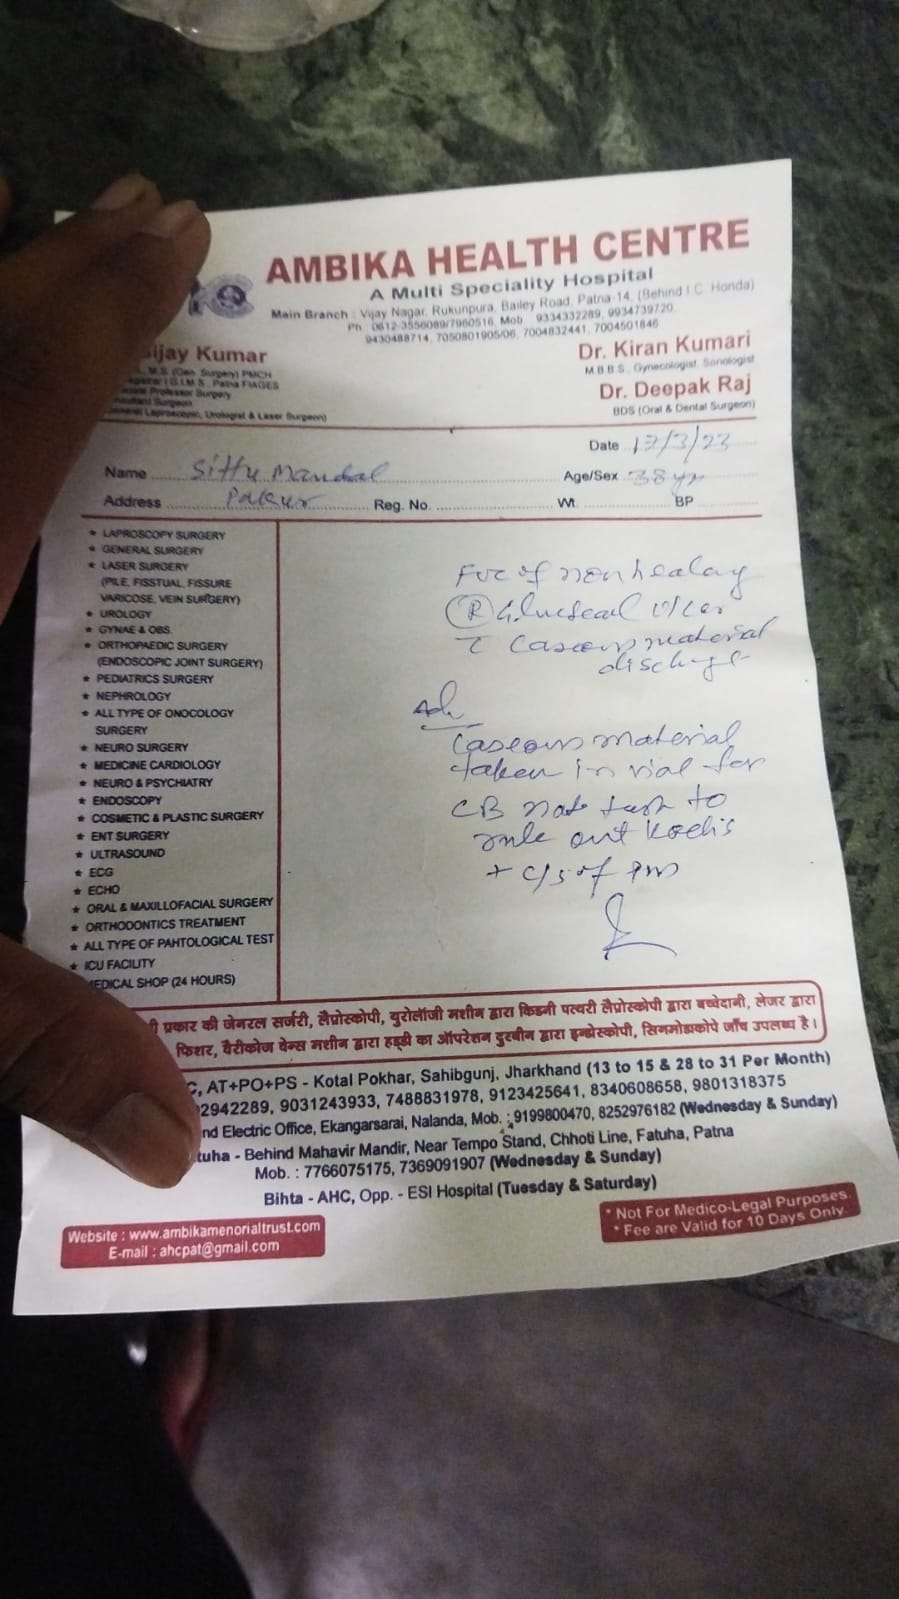 AMBIKA HEALTH CENTRE
A Multi Speciality Hospital
Main Branch : Vijay Nagar, Rukunpura, Bailey Road, Patna-14, (Behind I.C. Honda)
Ph : 0612-3556089/7960516, Mob : 9334332289, 9934739720,
9430488714, 7050801905/06, 7004832441, 7004501846
ijay Kumar
M.S (Gen. Surgery) PMCH
I.G.I.M.S., Patna FIAGES
Professor Surgery
Surgeon
Laproscopic, Urologist & Laser Surgeon)
Dr. Kiran Kumari
M.B.B.S., Gynecologist, Sonologist
Dr. Deepak Raj
BDS (Oral & Dental Surgeon)
Date 17/3/23
Name Sittu Mandal Age/Sex 38 yr
Address Pakur Reg. No. Wt. BP
★ LAPROSCOPY SURGERY
★ GENERAL SURGERY
★ LASER SURGERY
(PILE, FISSTUAL, FISSURE
VARICOSE, VEIN SURGERY)
★ UROLOGY
★ GYNAE & OBS.
★ ORTHOPAEDIC SURGERY
(ENDOSCOPIC JOINT SURGERY)
★ PEDIATRICS SURGERY
★ NEPHROLOGY
★ ALL TYPE OF ONOCOLOGY
SURGERY
★ NEURO SURGERY
★ MEDICINE CARDIOLOGY
★ NEURO & PSYCHIATRY
★ ENDOSCOPY
★ COSMETIC & PLASTIC SURGERY
★ ENT SURGERY
★ ULTRASOUND
★ ECG
★ ECHO
★ ORAL & MAXILLOFACIAL SURGERY
★ ORTHODONTICS TREATMENT
★ ALL TYPE OF PAHTOLOGICAL TEST
★ ICU FACILITY
MEDICAL SHOP (24 HOURS)
of non healing
(R) Gluteal Ulcer
c Caseous material
discharge
Adv
Caseous material
taken in vial for
CB Nat test to
rule out Koch's
+ C/S of Pus
प्रकार की जेनरल सर्जरी, लैप्रोस्कोपी, युरोलॉजी मशीन द्वारा किडनी पत्थरी लैप्रोस्कोपी द्वारा बच्चेदानी, लेजर द्वारा
फिशर, वैरीकोज वेन्स मशीन द्वारा हड्डी का ऑपरेशन दुरबीन द्वारा इन्डोस्कोपी, सिगमोडाकोपे जाँच उपलब्ध है।
C, AT+PO+PS - Kotal Pokhar, Sahibgunj, Jharkhand (13 to 15 & 28 to 31 Per Month)
2942289, 9031243933, 7488831978, 9123425641, 8340608658, 9801318375
nd Electric Office, Ekangarsarai, Nalanda, Mob. : 9199800470, 8252976182 (Wednesday & Sunday)
tuha - Behind Mahavir Mandir, Near Tempo Stand, Chhoti Line, Fatuha, Patna
Mob. : 7766075175, 7369091907 (Wednesday & Sunday)
Bihta - AHC, Opp. - ESI Hospital (Tuesday & Saturday)
Website : www.ambikamenorialtrust.com
E-mail : ahcpat@gmail.com
* Not For Medico-Legal Purposes.
* Fee are Valid for 10 Days Only.